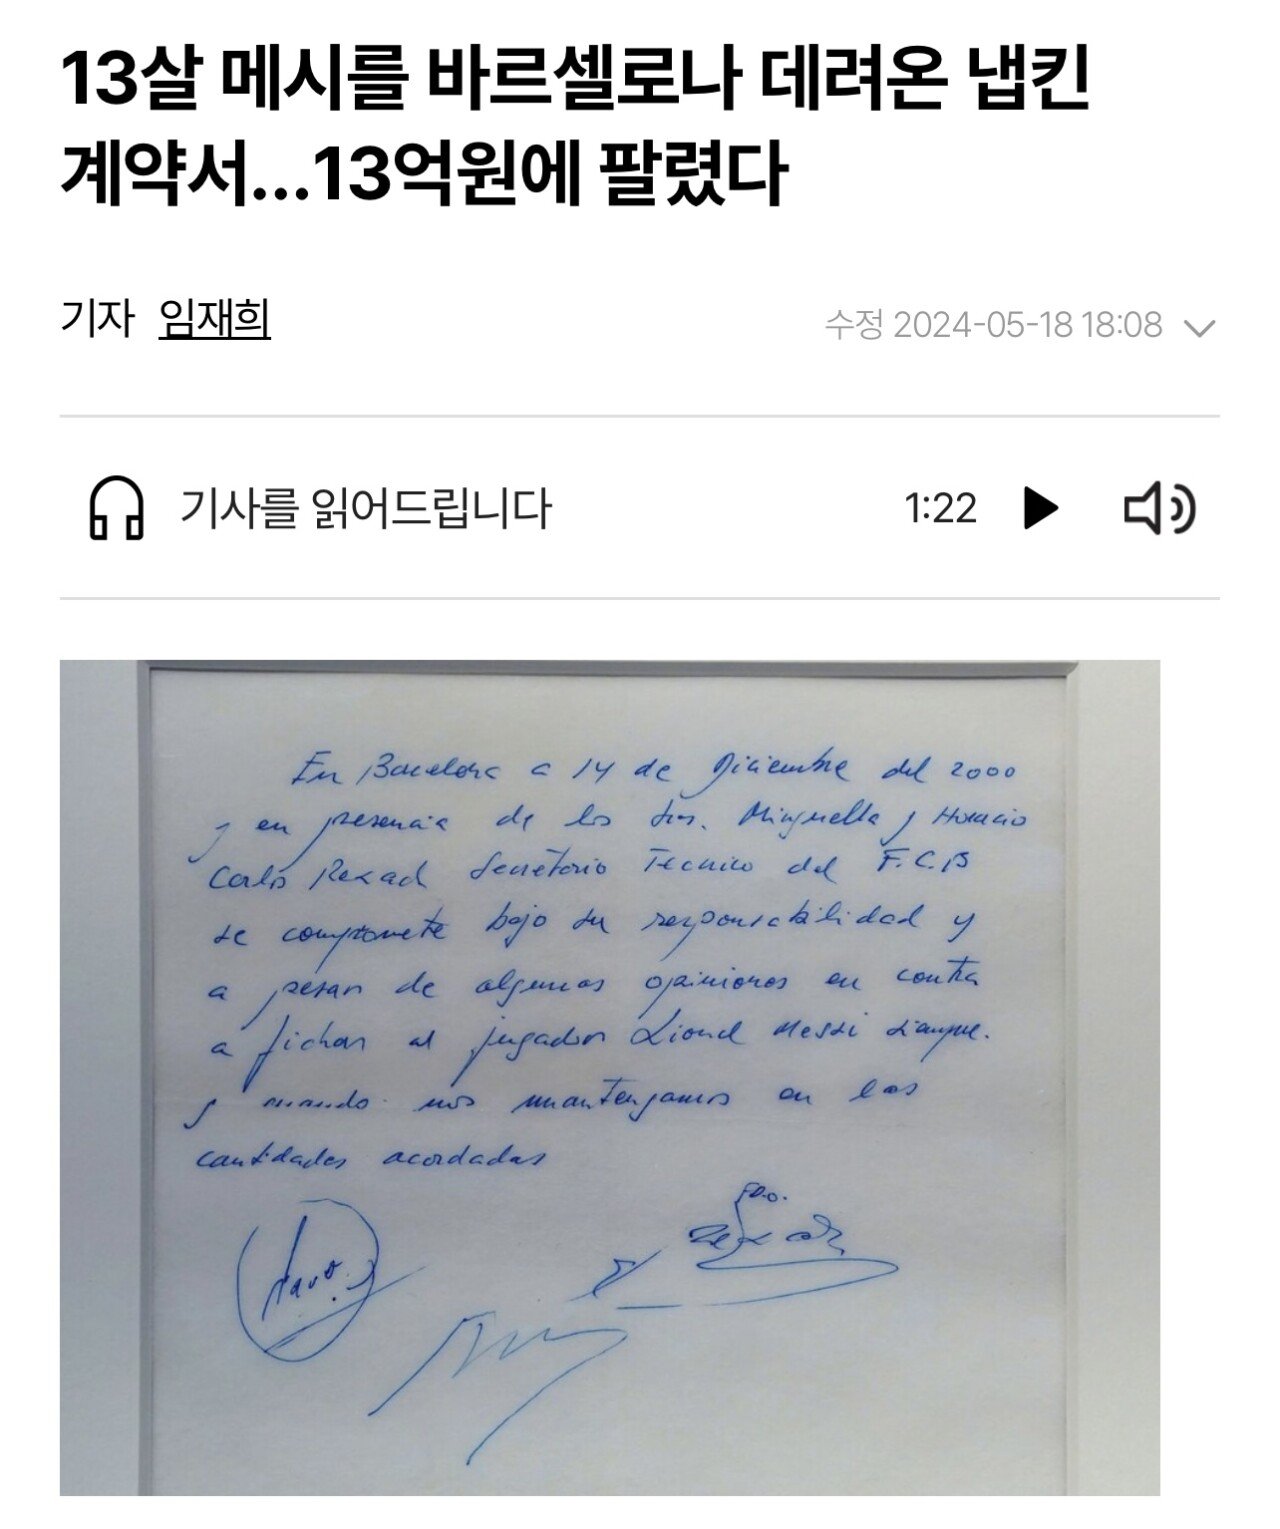 13살 메시를 바르셀로나 데려온 냅킨
계약서...13억원에 팔렸다
기자 임재희
수정 2024-05-18 18:08
기사를 읽어드립니다
1:22
En Barcelona a 14 de Diciembre del 2000
y en presencia de los Srs. Minguella y Horacio
Carlos Rexach Secretario Tecnico del F.C.B
se compromete bajo su responsabilidad y
a pesar de algunas opiniones en contra
a fichar al jugador Lionel Messi siempre.
y cuando nos mantengamos en las
cantidades acordadas